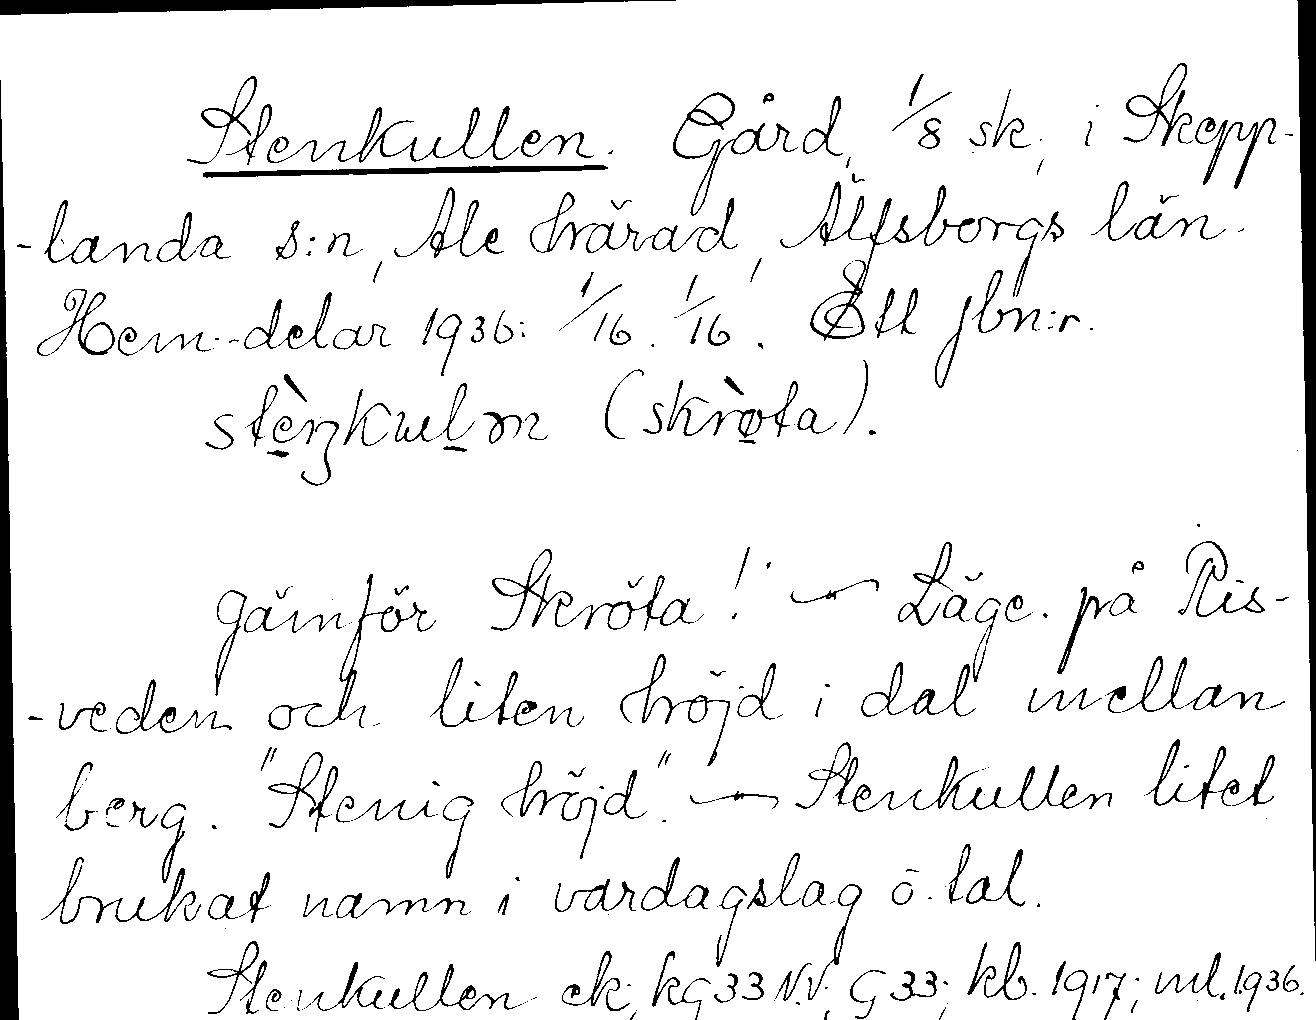 Stenkullen. Gård, 1/8 sk., i Skepp-
-landa s:n, Ale härad, Älfsborgs län.
Hem.-delar 1936: 1/16. 1/16. Ett jbn:r.
(skrøta).
Jämför Skröta! — Läge. på Ris-
-veden och liten höjd i dal mellan
berg. "Stenig höjd". — Stenkullen litet
brukat namn i vardagslag ö. tal.
Stenkullen ek; kg 33 N.V; G 33; kb. 1917; ml. 1936.